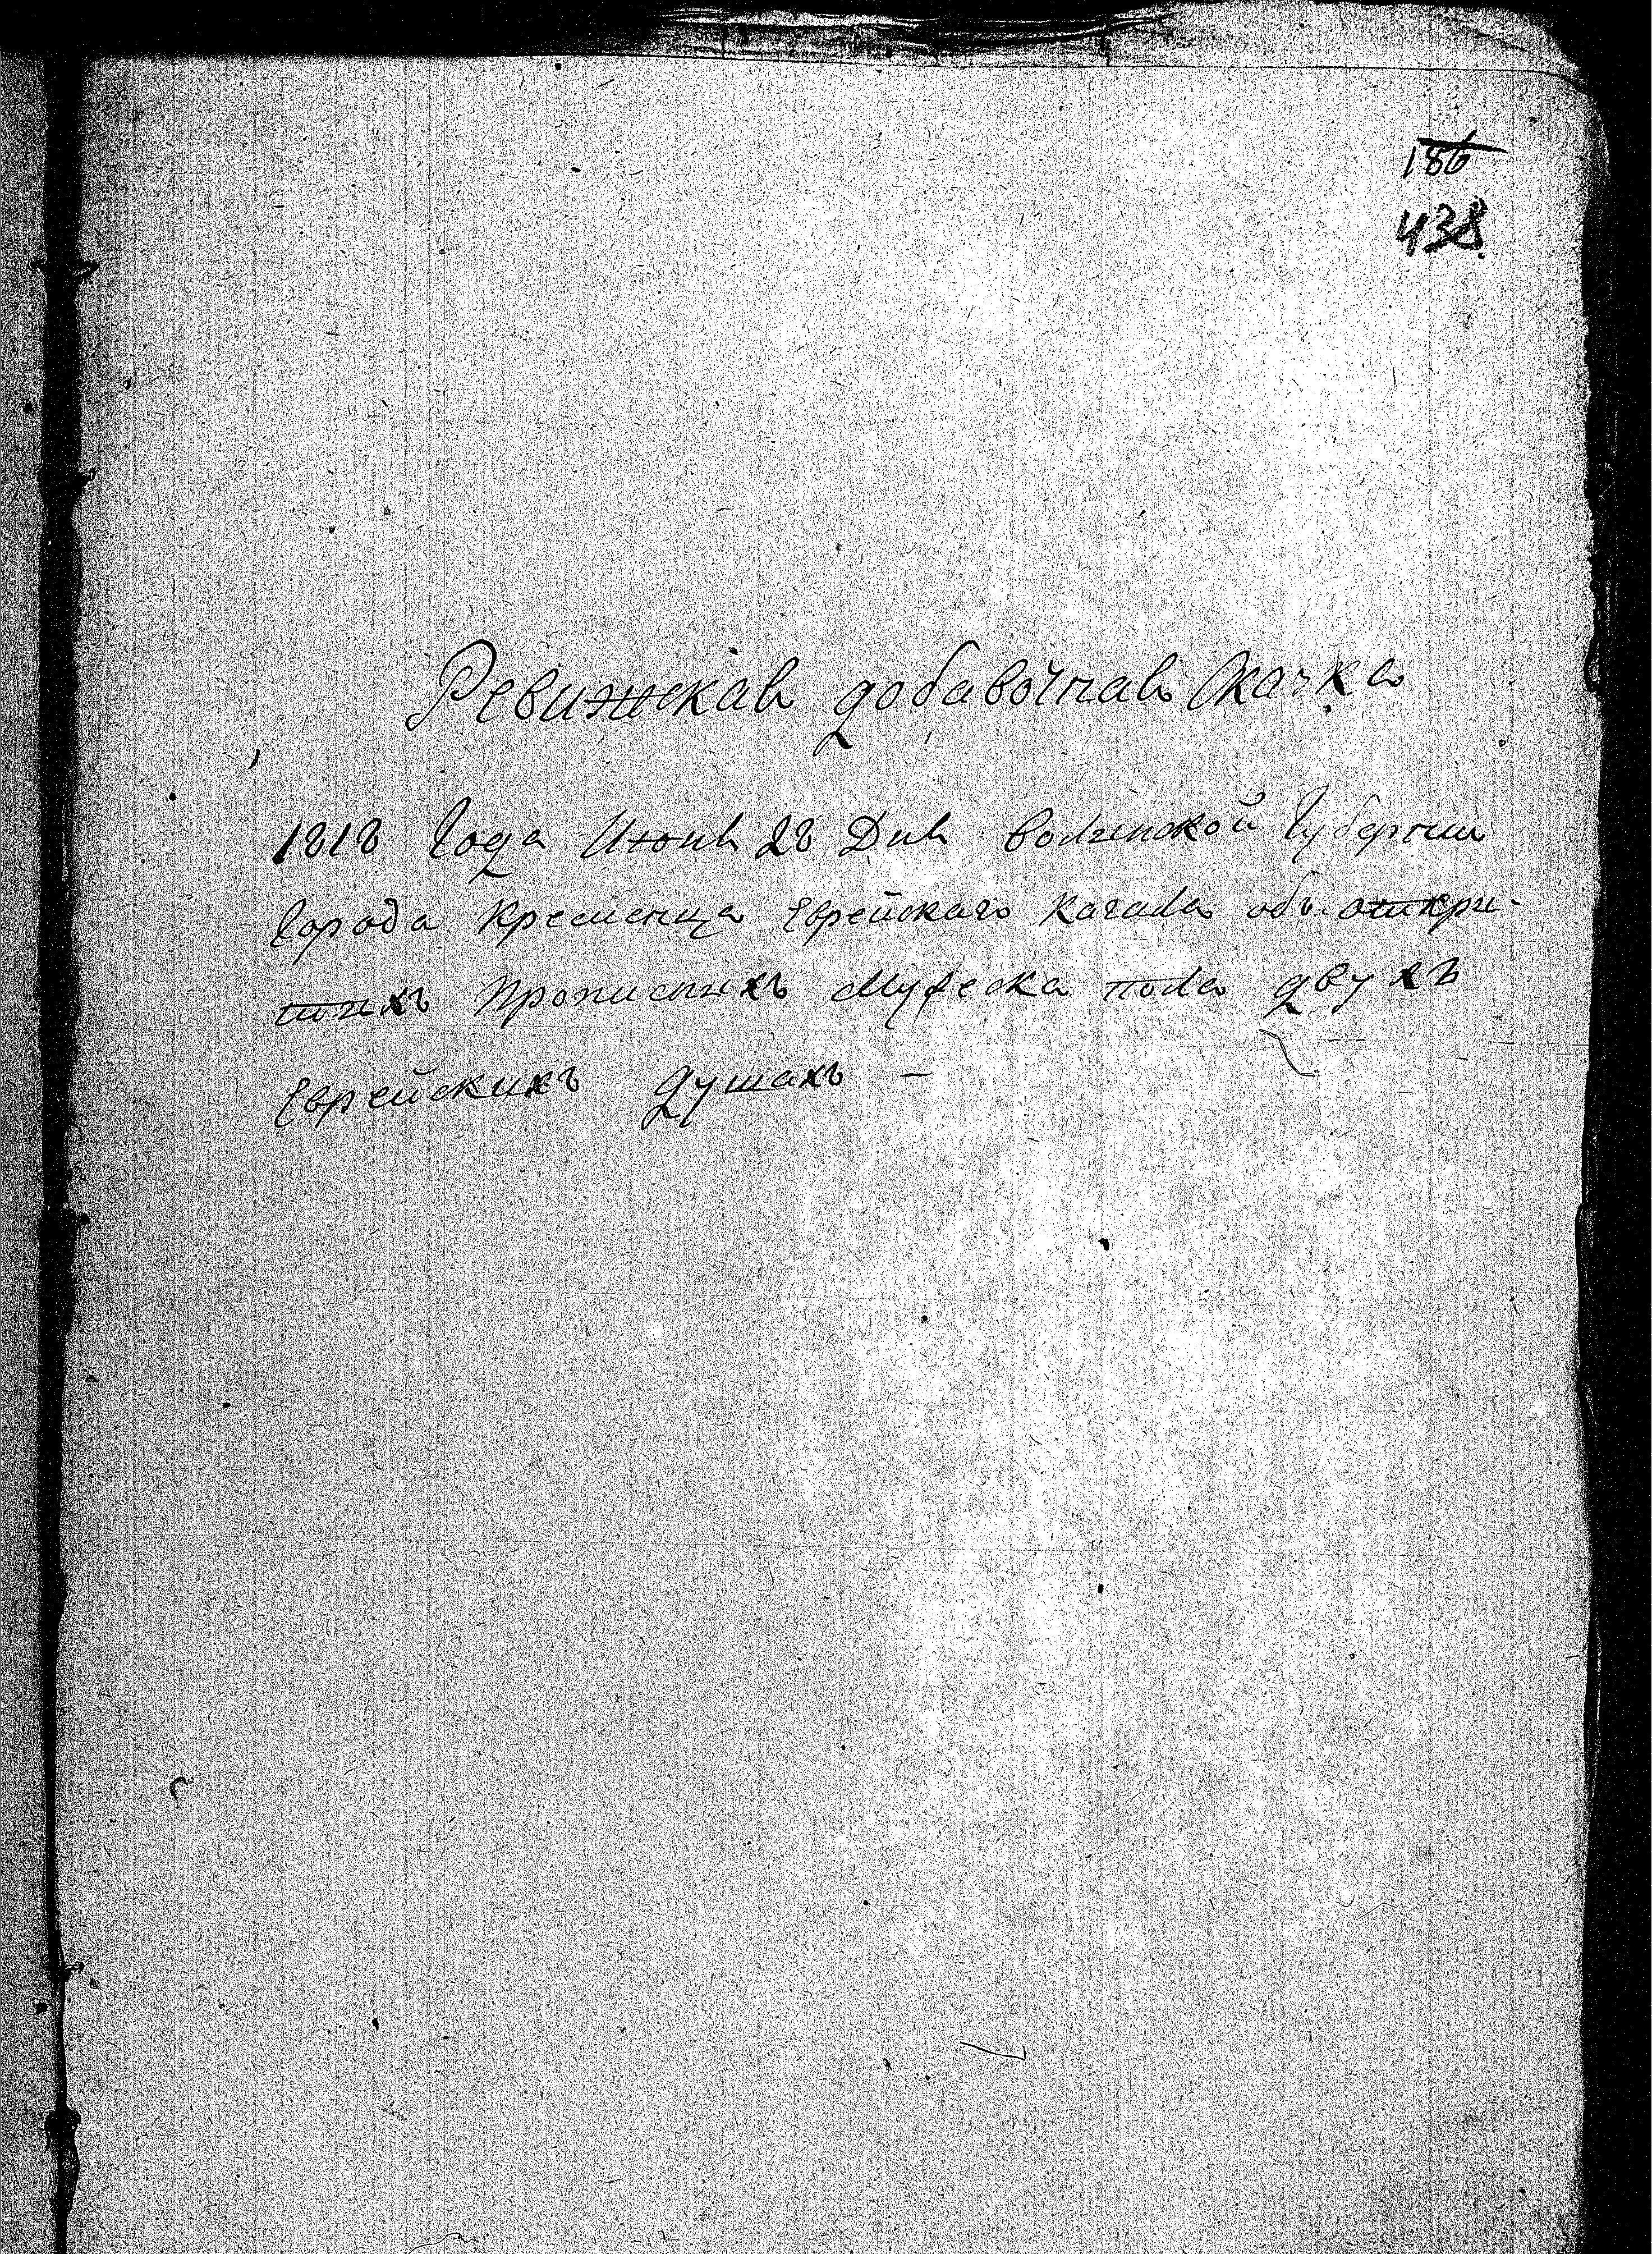 186
438
Ревижская добавочная Сказка
1818 Года Июня 28 Дня Волынской Губернии
Города Кременца Еврейскаго Кагала объ откри-
тыхъ Прописныхъ Мужеска пола двухъ
Еврейскихъ Душахъ —